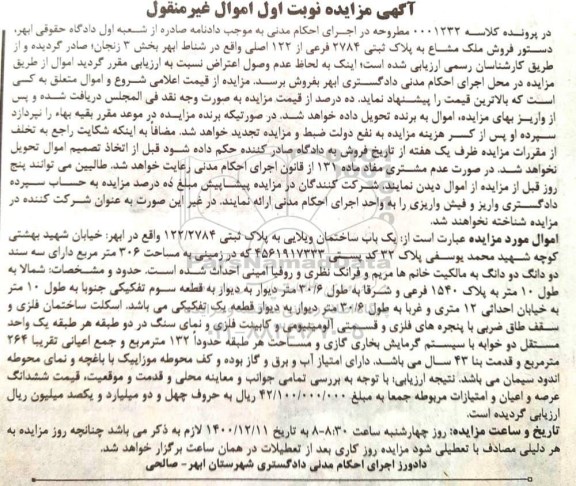 آگهی مزایده نوبت اول اموال غیرمنقول
در پرونده کلاسه ۰۰۰۱۲۳۲ مطروحه در اجرای احکام مدنی به موجب دادنامه صادره از شعبه اول دادگاه حقوقی ابهر،
دستور فروش ملک مشاع به پلاک ثبتی ۲۷۸۴ فرعی از ۱۲۲ اصلی واقع در شناط ابهر بخش ۳ زنجان؛ صادر گردیده و از
طریق کارشناسان رسمی ارزیابی شده است؛ اینک به لحاظ عدم وصول اعتراض نسبت به ارزیابی مقرر گردید اموال از طریق
مزایده در محل اجرای احکام مدنی دادگستری ابهر بفروش برسد. مزایده از قیمت اعلامی شروع و اموال متعلق به کی
است که بالاترین قیمت را پیشنهاد نماید. ده درصد از قیمت مزایده به صورت وجه نقد فی المجلس دریافت شده و پس
از واریز بهای مزایده، اموال به برنده تحویل داده خواهد شد. در صورتیکه برنده مزایده در موعد مقرر بقیه بهاء را نپردازد
سپرده او پس از کسر هزینه مزایده به نفع دولت ضبط و مزایده تجدید خواهد شد. مضافاً به اینکه شکایت راجع به تخلف
از مقررات مزایده ظرف یک هفته از تاریخ فروش به دادگاه صادر کننده حکم داده شود قبل از اتخاذ تصمیم اموال تحویل
نخواهد شد. در صورت عدم مشتری مفاد ماده ۱۳۱ از قانون اجرای احکام مدنی رعایت خواهد شد. طالبین می توانند پنج
روز قبل از مزایده از اموال دیدن نمایند. شرکت کنندگان در مزایده پیشاپیش مبلغ ده درصد مزایده به حساب سپرده
دادگستری واریز و فیش واریزی را به واحد اجرای احکام مدنی ارائه نمایند. در غیر این صورت به عنوان شرکت کننده در
مزایده شناخته نخواهند شد.
اموال مورد مزایده عبارت است از: یک باب ساختمان ویلایی به پلاک ثبتی ۱۲۲/۲۷۸۴ واقع در ابهر: خیابان شهید بهشتی
کوچه شهید محمد یوسفی پلاک ۳۲ کد پستی ۴۵۶۱۱۱۷۳۳۳ که در زمینی به مساحت ۳۰۶ متر مربع دارای سه سند
دو دانگ دو دانگ به مالکیت خانم ها مریم و فرانک نظری و روفیا امینی احداث شده است. حدود و مشخصات: شمالا به
طول ۱۰ متر به پلاک ۱۵۴۰ فرعی و شرقا به طول ۳۰/۶ متر دیوار به دیوار به قطعه سوم تفکیکی جنوبا به طول ۱۰ متر
به خیابان احداثی ۱۲ متری و غربا به طول ۳۰/۶ متر دیوار به دیوار قطعه یک تفکیکی می باشد. اسکلت ساختمان فلزی و
سقف طاق ضربی با پنجره های فلزی و قسمتی آلومینیومی و کابینت فلزی و نمای سنگ در دو طبقه هر طبقه یک واحد
مستقل دو خوابه با سیستم گرمایش بخاری گازی و مساحت هر طبقه حدوداً ۱۳۲ مترمربع و جمع اعیانی تقریبا ۲۶۴
مترمربع و قدمت بنا ۴۳ سال می باشد. دارای امتیاز آب و برق و گاز بوده و کف محوطه موزاییک با باغچه و نمای محوطه
اندود سیمان می باشد. نتیجه ارزیابی: با توجه به بررسی تمامی جوانب و معاینه محلی و قدمت و موقعیت، قیمت ششدانگ
عرصه و اعیان و امتیازات مربوطه جمعا به مبلغ ۴۲/۱۰۰/۰۰۰/۰۰۰ ریال به حروف چهل و دو میلیارد و یکصد میلیون ریال
ارزیابی گردیده است.
تاریخ و ساعت مزایده: روز چهارشنبه ساعت ۸:۳۰-۸ به تاریخ ۱۴۰۰/۱۲/۱۱ لازم به ذکر می باشد چنانچه روز مزایده به
هر دلیلی مصادف با تعطیلی شود مزایده روز کاری بعد از تعطیلات در همان ساعت برگزار خواهد شد.
دادورز اجرای احکام مدنی دادگستری شهرستان ابهر- صالحی